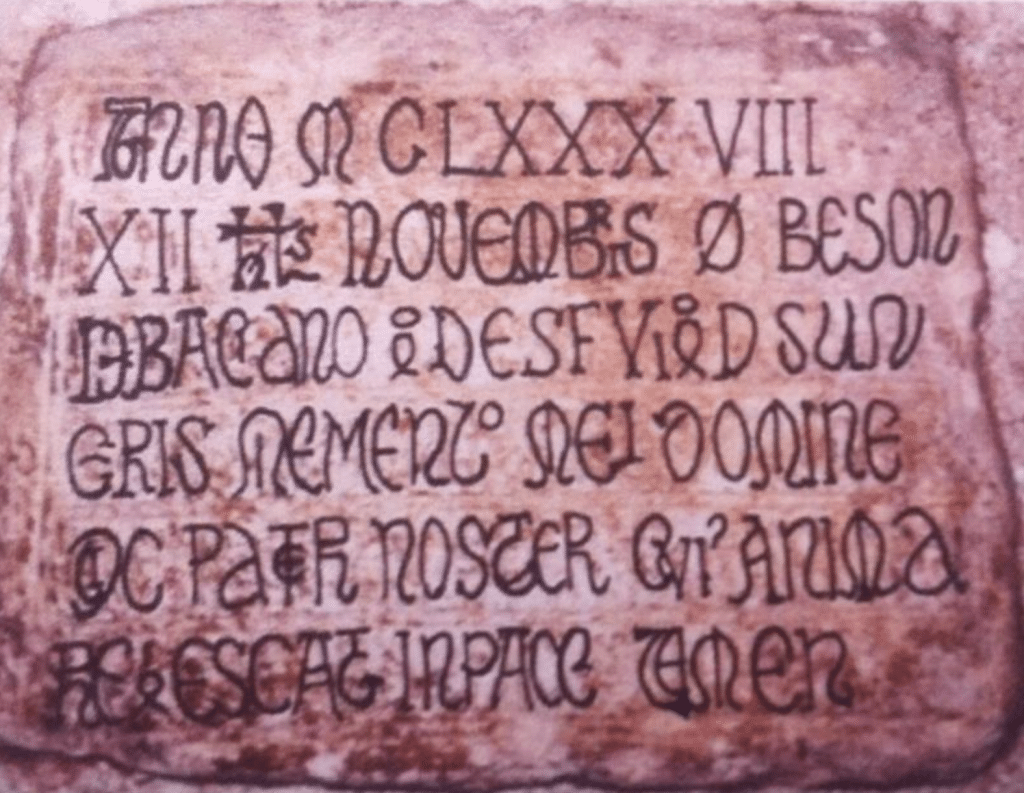 ANNO M CLXXX VIII
XII NOVEMBRIS Ø BESON
BACANO
ERIS MEMENTO MEI DOMINE
PATER NOSTER ANIMA
REQESCAT IN PACE AMEN